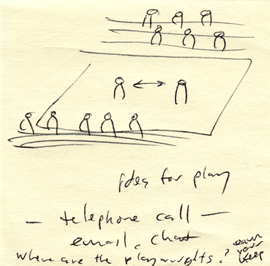 idea for play
— telephone call —
email, chat
where are the playwrights?
earn
your
keep